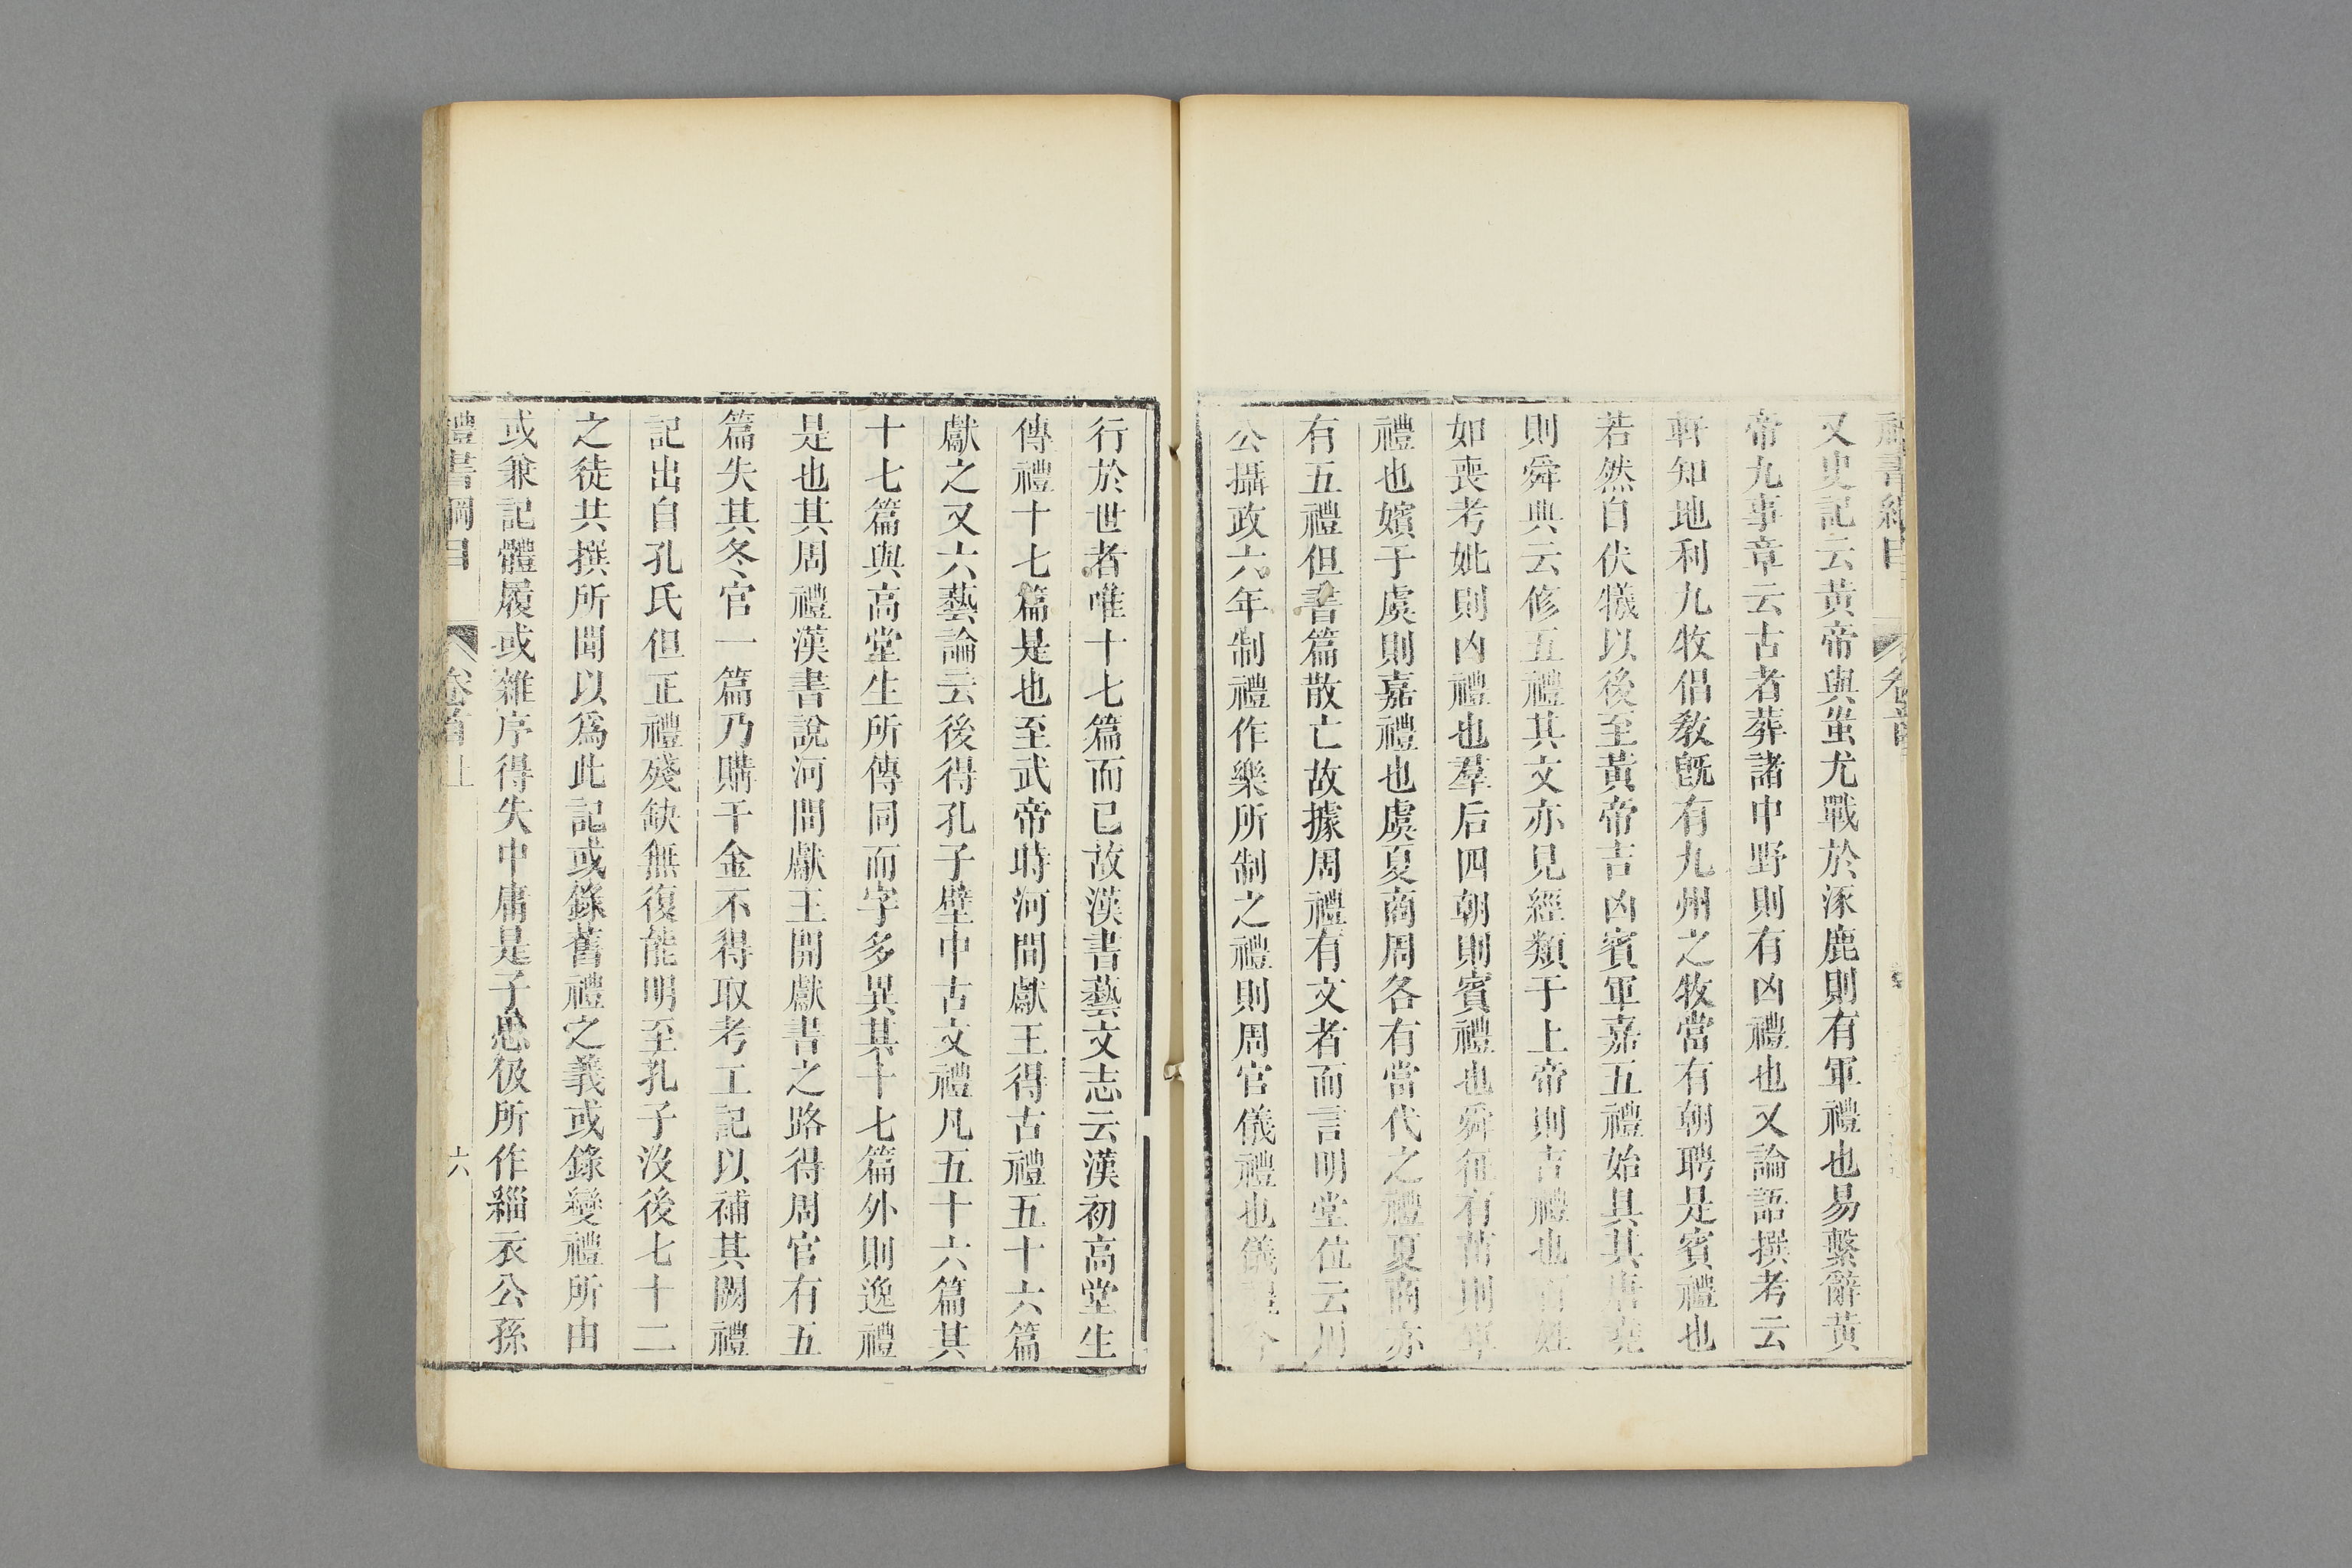 禮書綱目
卷首
又史記云黃帝與蚩尤戰於涿鹿則有軍禮也易繫辭黃
帝九事章云古者葬諸中野則有凶禮也又論語撰考云
軒知地利九牧倡敎旣有九州之牧當有朝聘是賓禮也
若然自伏犧以後至黃帝吉凶賓軍嘉五禮始具其唐堯
則舜典云修五禮其文亦見經類于上帝則吉禮也百姓
如喪考妣則凶禮也羣后四朝則賓禮也舜征有苗則軍
禮也嬪于虞則嘉禮也虞夏商周各有當代之禮夏商亦
有五禮但書篇散亡故據周禮有文者而言明堂位云周
公攝政六年制禮作樂所制之禮則周官儀禮也儀禮今
行於世者唯十七篇而已故漢書藝文志云漢初高堂生
傳禮十七篇是也至武帝時河間獻王得古禮五十六篇
獻之又六藝論云後得孔子壁中古文禮凡五十六篇其
十七篇與高堂生所傳同而字多異其十七篇外則逸禮
是也其周禮漢書說河間獻王開獻書之路得周官有五
篇失其冬官一篇乃購千金不得取考工記以補其闕禮
記出自孔氏但正禮殘缺無復能明至孔子沒後七十二
之徒共撰所聞以爲此記或錄舊禮之義或錄變禮所由
或兼記體履或雜序得失中庸是子思伋所作緇衣公孫
禮書綱目
卷首上
六